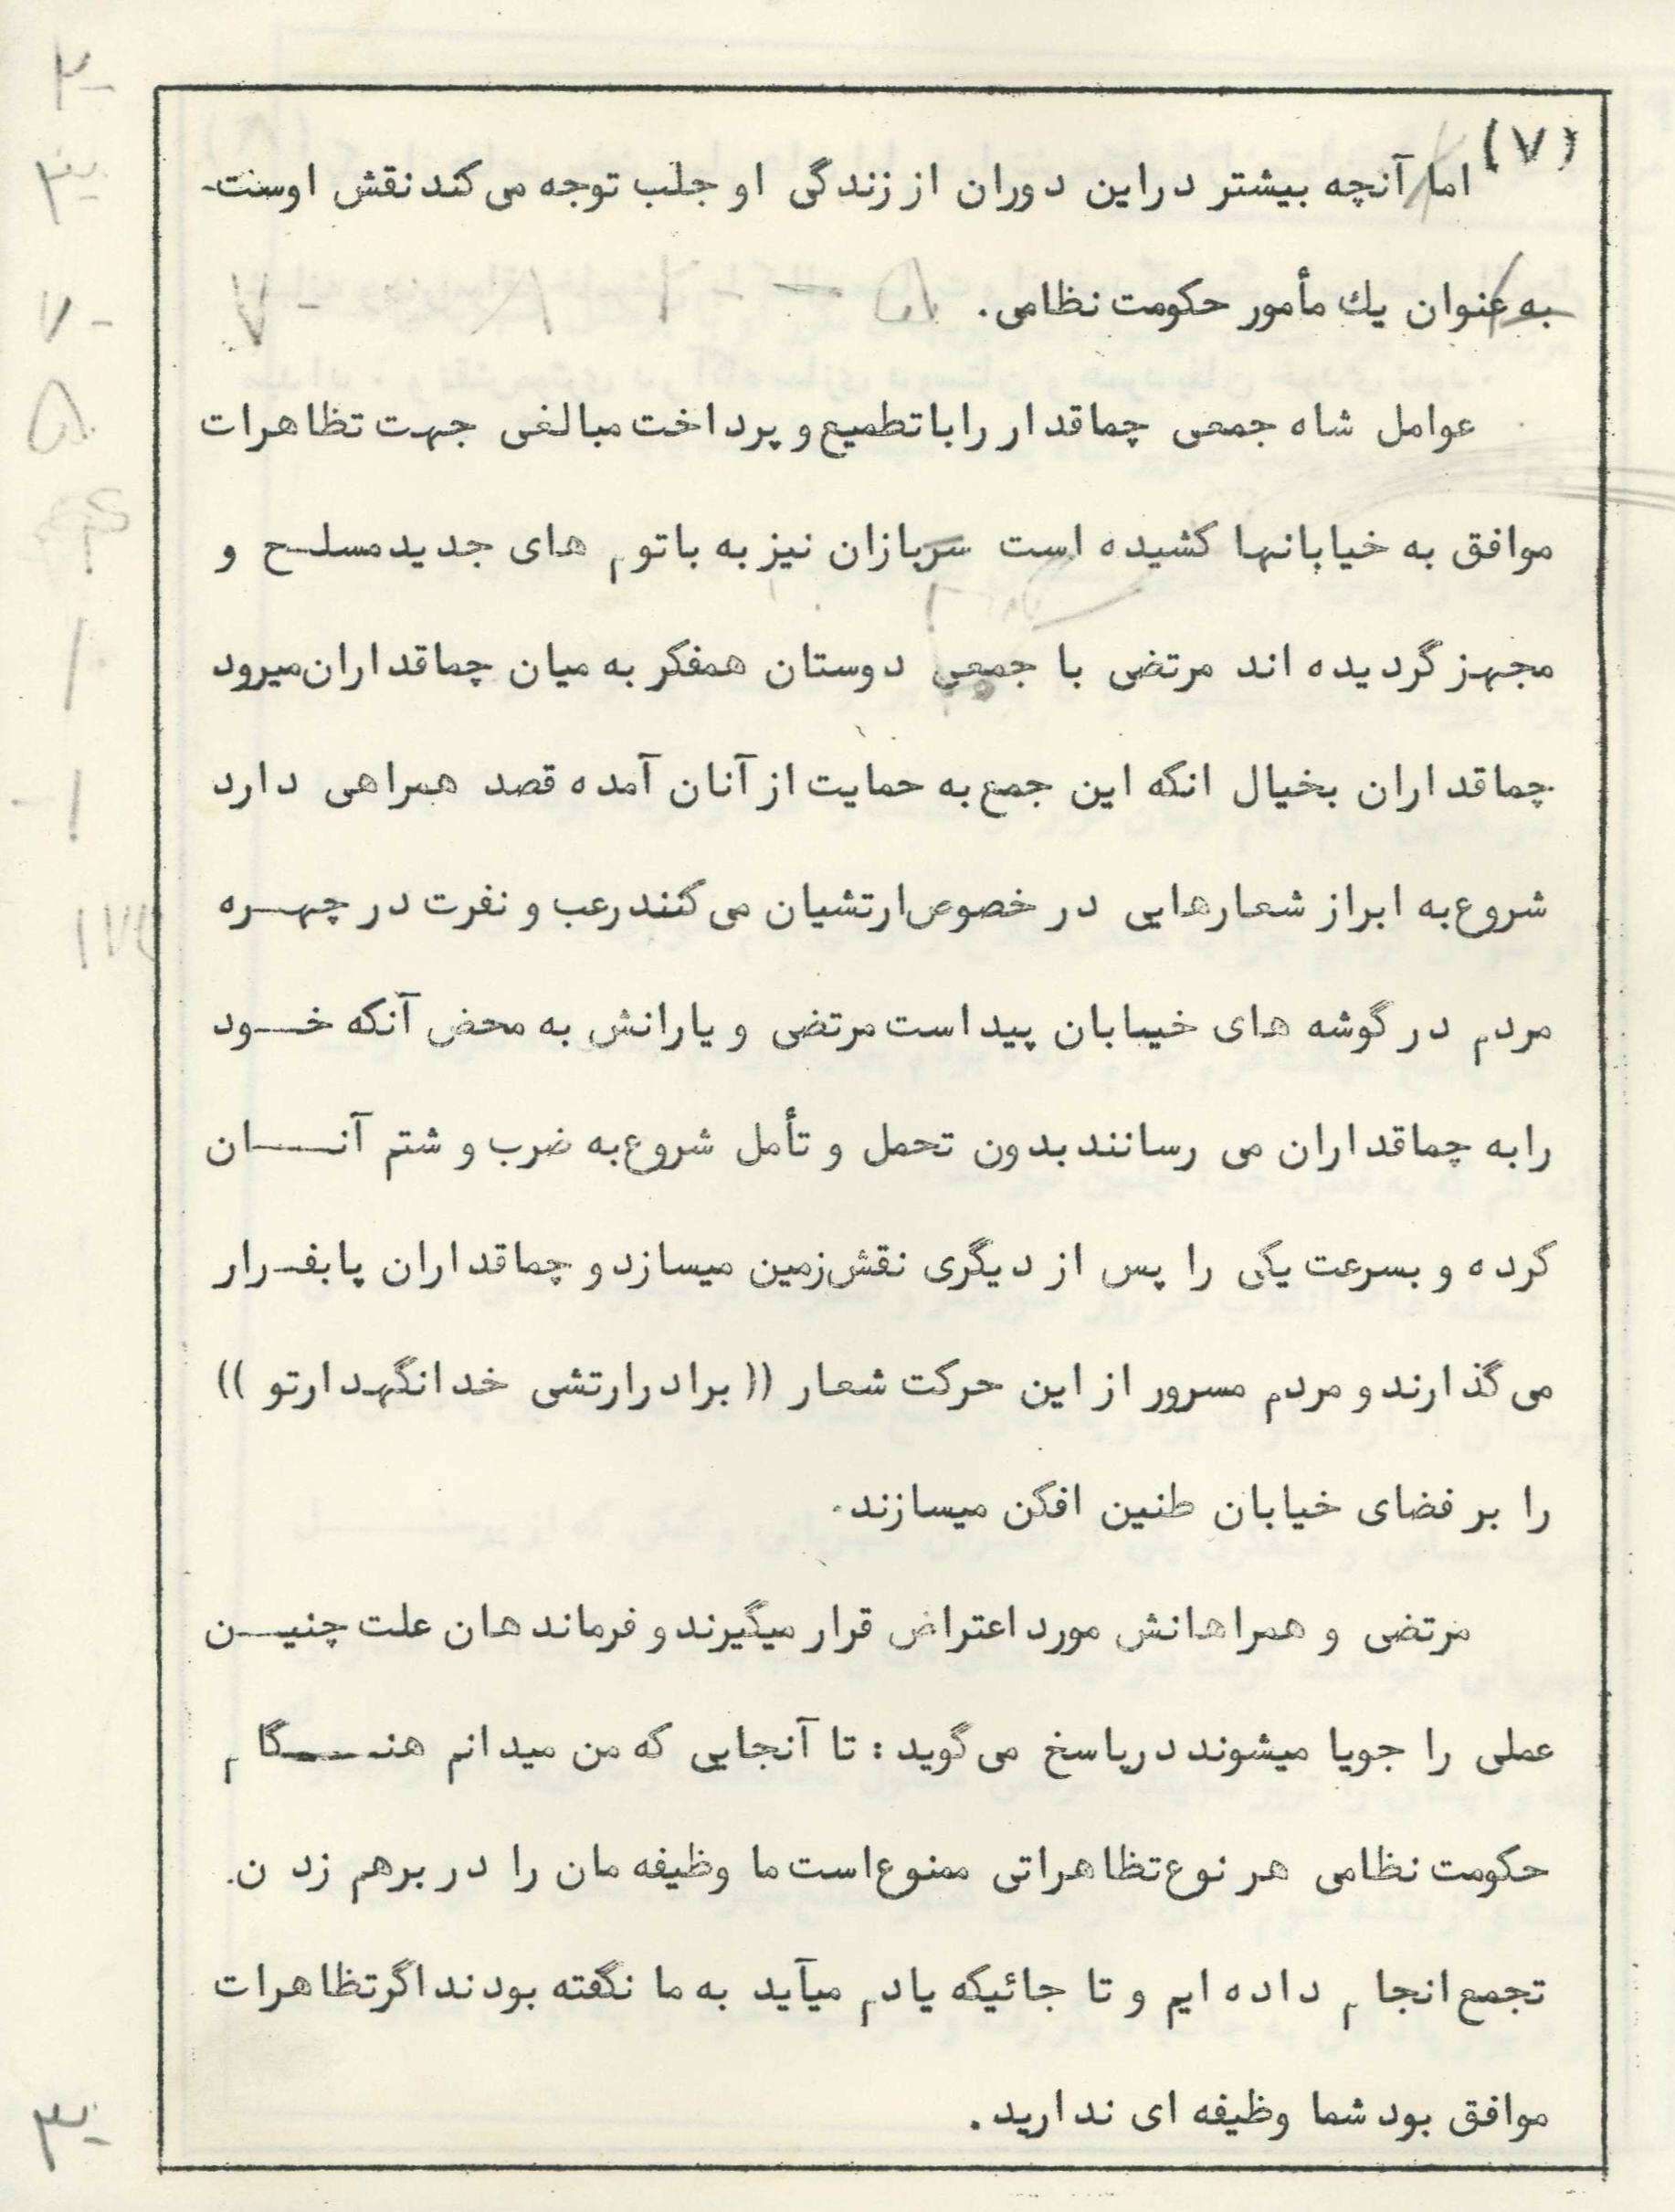 (۷)
اما آنچه بیشتر در این دوران از زندگی او جلب توجه می کند نقش اوست-
به عنوان یك مأمور حکومت نظامی.
عوامل شاه جمعی چماقدار را با تطمیع و پرداخت مبالغی جهت تظاهرات
موافق به خیابانها کشیده است سربازان نیز به باتوم های جدید مسلح و
مجهز گردیده اند مرتضی با جمعی دوستان همفکر به میان چماقداران میرود
چماقداران بخیال انکه این جمع به حمایت از آنان آمده قصد همراهی دارد
شروع به ابراز شعارهایی در خصوص ارتشیان می کنند رعب و نفرت در چهره
مردم در گوشه های خیابان پیداست مرتضی و یارانش به محض آنکه خود
را به چماقداران می رسانند بدون تحمل و تأمل شروع به ضرب و شتم آنان
کرده و بسرعت یکی را پس از دیگری نقش زمین میسازد و چماقداران پا بفرار
می گذارند و مردم مسرور از این حرکت شعار (( برادر ارتشی خدا نگهدار تو ))
را بر فضای خیابان طنین افکن میسازند.
مرتضی و همراهانش مورد اعتراض قرار میگیرند و فرماندهان علت چنین
عملی را جویا میشوند در پاسخ می گوید : تا آنجایی که من میدانم هنگام
حکومت نظامی هر نوع تظاهراتی ممنوع است ما وظیفه مان را در برهم زدن
تجمع انجام داده ایم و تا جائیکه یادم میآید به ما نگفته بودند اگر تظاهرات
موافق بود شما وظیفه ای ندارید.